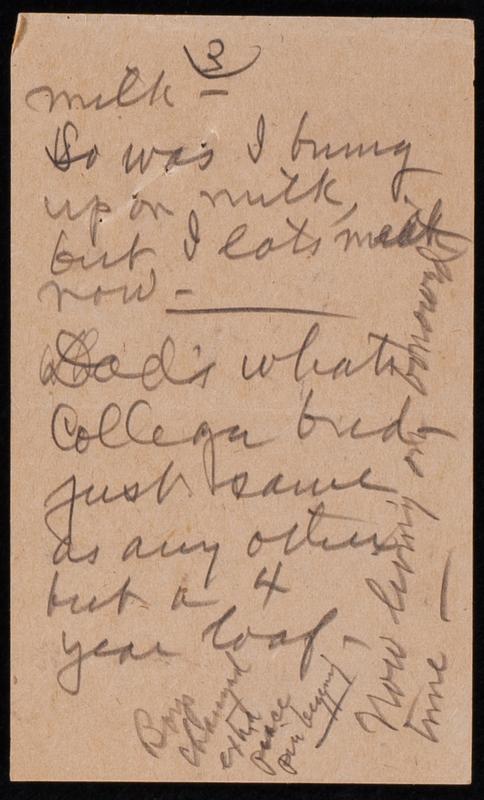 3
milk -
So was I brung
up on milk,
but I eats meat
now -
Dad's whats
College bred -
just same
as any other
but a 4
year loaf -
Now living on borrowed
time -
Boys
changed
extra
peace